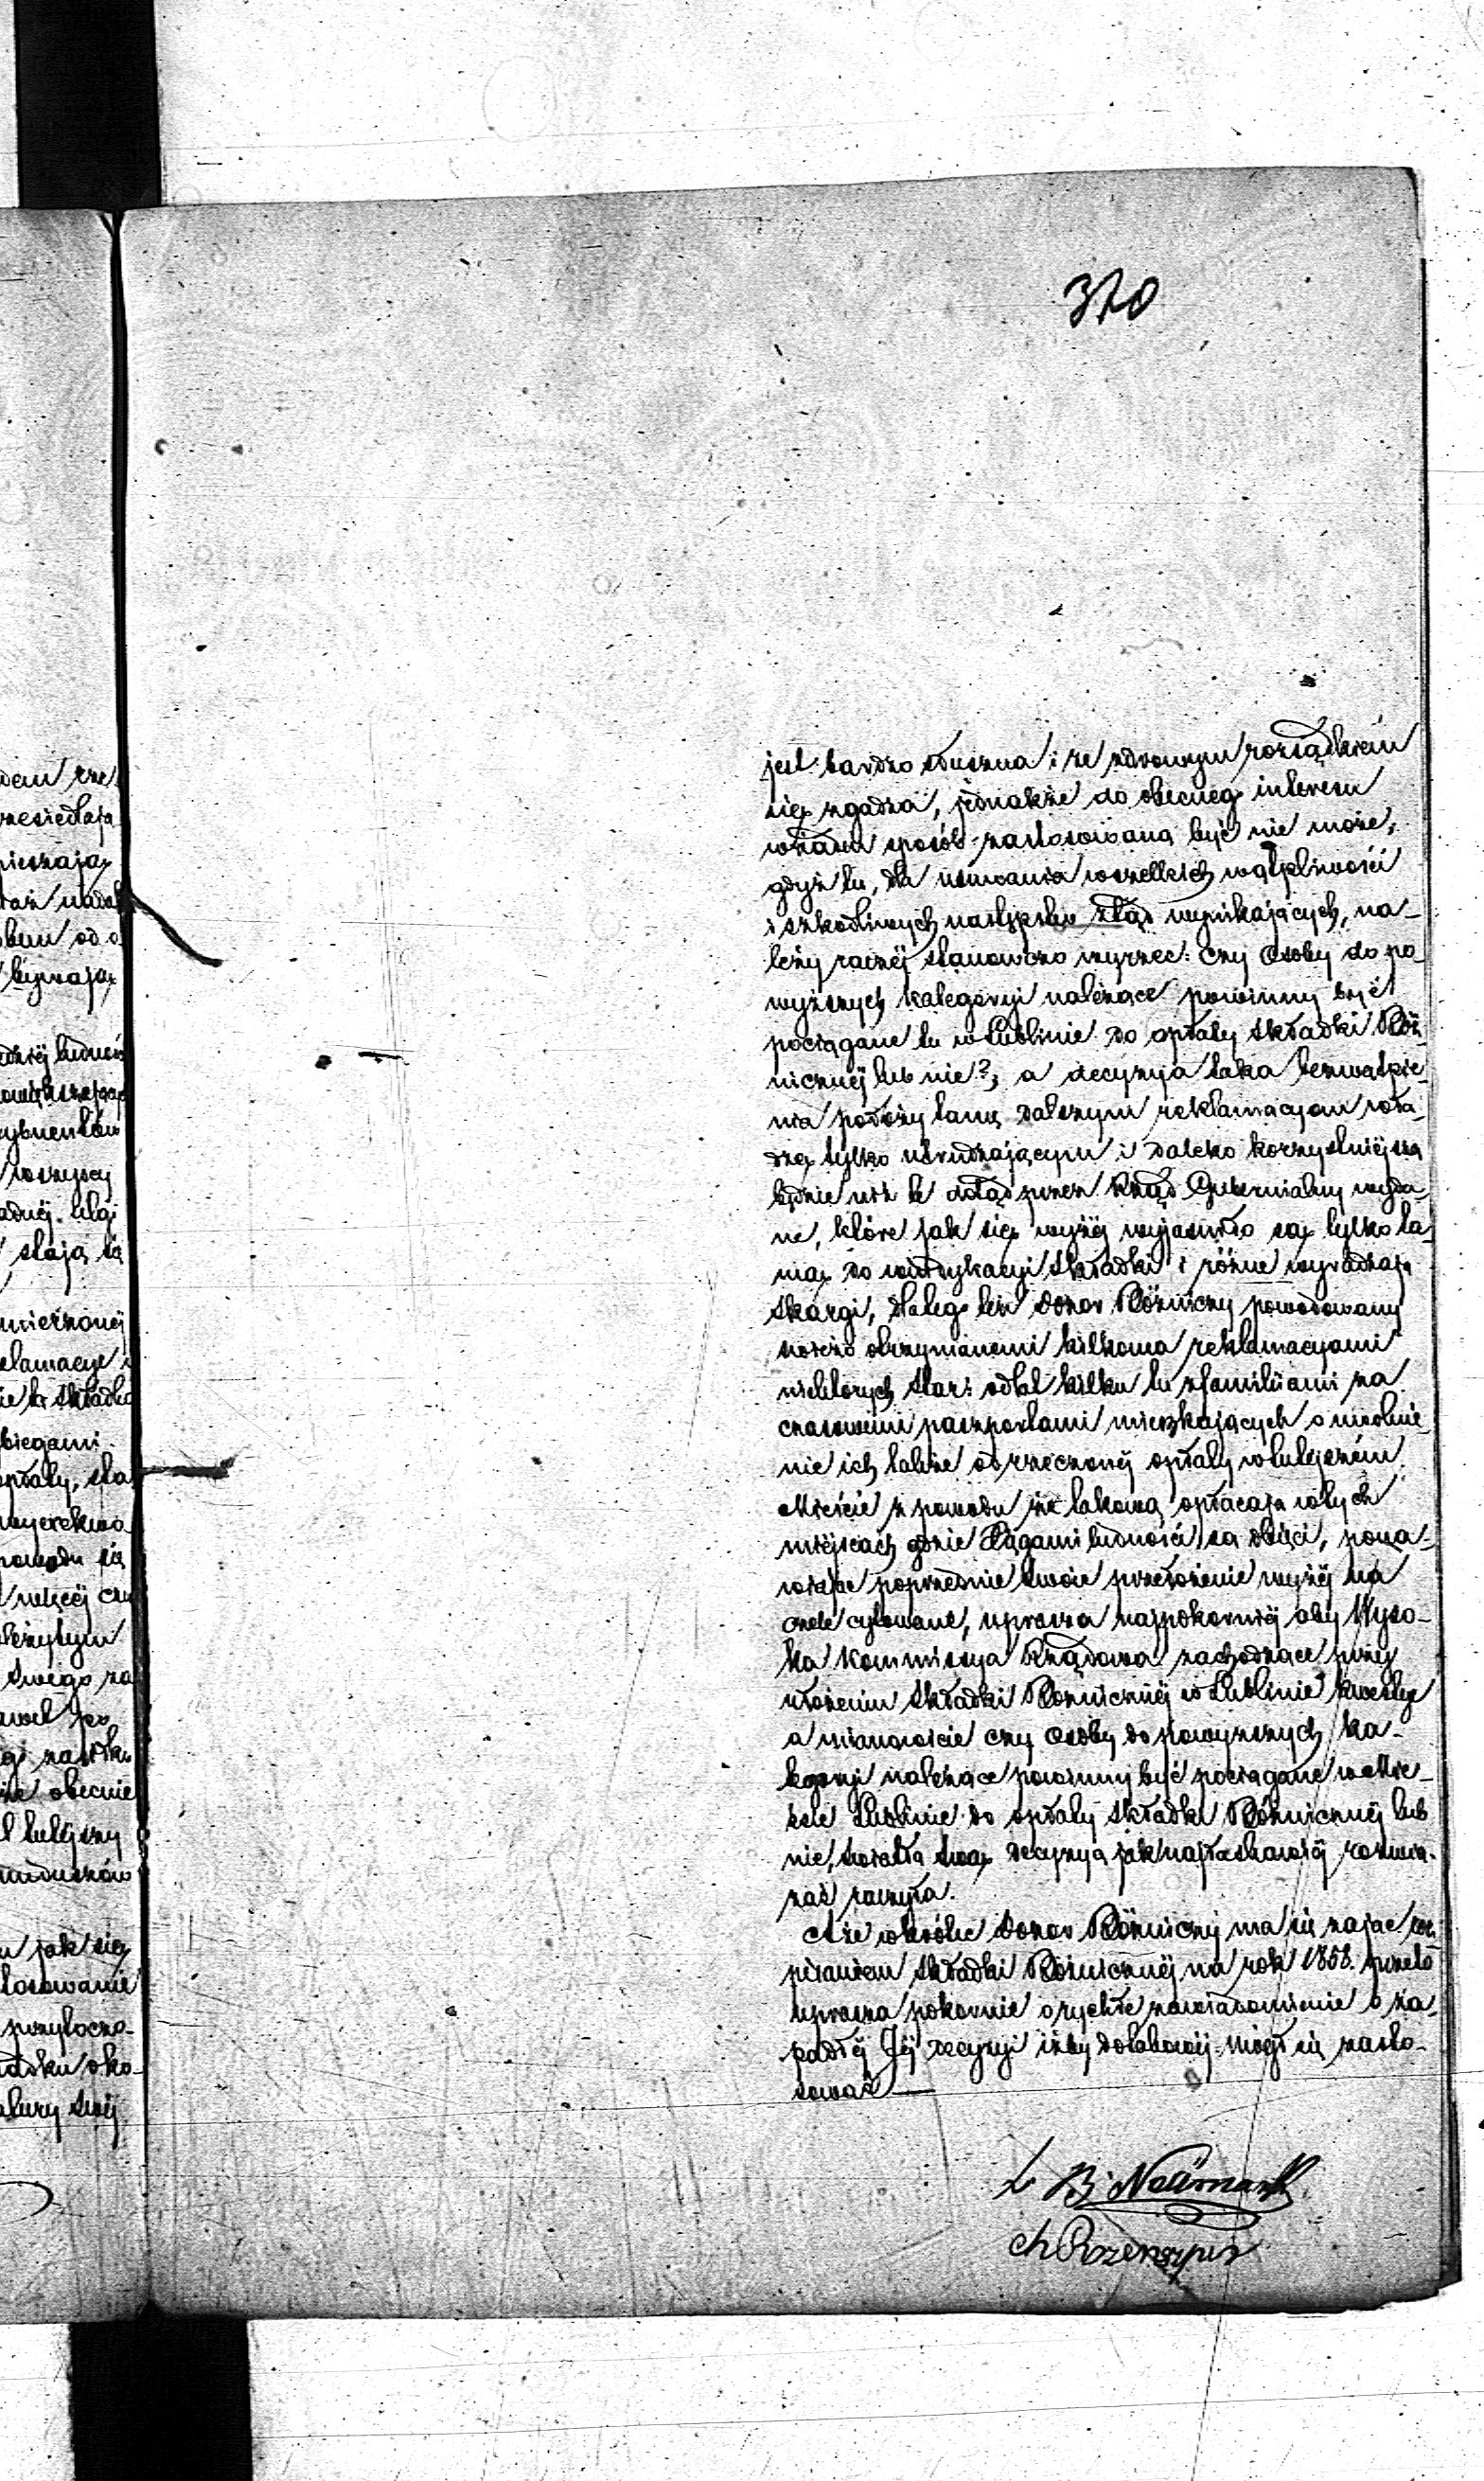 370
jest bardzo słuszna i ze zdrowym rozsądkiem
się zgadza, jednakże do obecnego interesu
w żaden sposób zastosowana być nie może,
gdyż tu, dla usuwania wszelkich wątpliwości
i szkodliwych następstw ztąd wynikających, na-
leży raczéj stanowczo wyrzec: czy Osoby do po-
wyższych kategoryi należące powinny być
pociągane tu w Lublinie do opłaty składki Bóż-
nicznéj lub nie?, a decyzya taka bezwątpie-
nia położy tamę dalszym reklamacyom wła-
dzę tylko utrudzającym i daleko korzystniejszą
będzie niż te dotąd przez Rząd Gubernialny wyda-
ne, które jak się wyżéj wyjaśniło są tylko ta-
mą do windykacyi składki i różne wyradzają
skargi, dlatego też Dozor Bóżniczy powodowany
świeżo otrzymanemi kilkoma reklamacyami
niektórych Star: odtąd kilku tu z familiami za
czasowemi paszportami mieszkających o uwolnie-
nie ich także od rzeczonéj opłaty w tutejszém
Mieście z powodu że takową opłacają w tych
miejscach gdzie Xięgami ludności są objęci, pona-
wiając poprzednie swoie przełożenie wyżéj na
czele cytowane, uprasza najpokorniéj aby Wyso-
ka Kommissya Rządowa zachodzące przy
ułożeniu składki Bóżnicznéj w Lublinie kwestye
a mianowicie czy Osoby do powyższych ka-
tegoryi należące powinny być pociągane w Mie-
ście Lublinie do opłaty składki Bóżnicznéj lub
nie, światłą swą decyzyą jak najłaskawiéj rozwią-
zać raczyła.
A że wkrótce Dozor Bóżniczy ma się zająć roz-
pisaniem składki Bóżnicznéj na rok 1858. przeto
uprasza pokornie o rychłe zawiadomienie o za-
padłéj Jéj decyzyi iżby do takowéj mógł się zasto-
sować —
B. Neümark